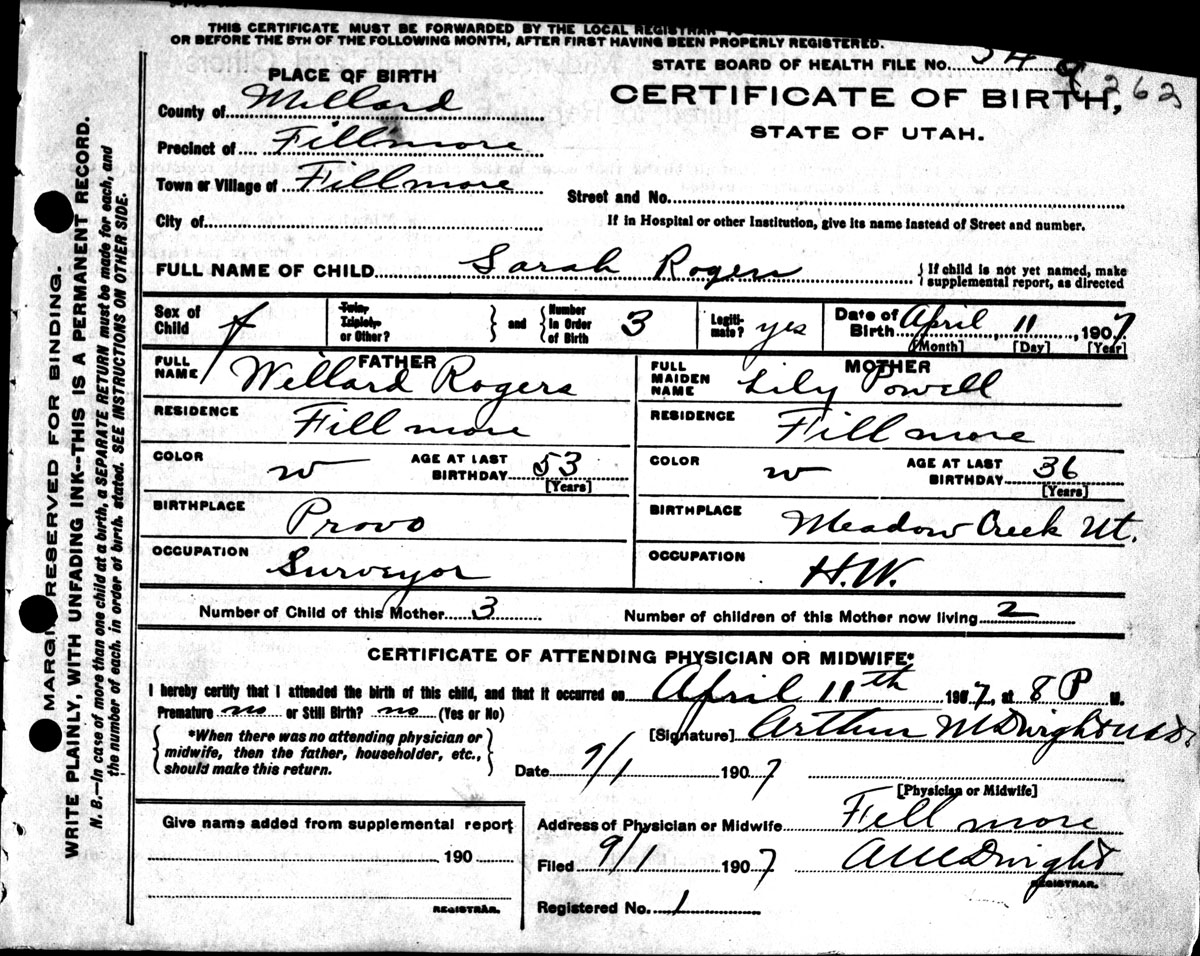 THIS CERTIFICATE MUST BE FORWARDED BY THE LOCAL REGISTRAR
OR BEFORE THE 5TH OF THE FOLLOWING MONTH, AFTER FIRST HAVING BEEN PROPERLY REGISTERED.
STATE BOARD OF HEALTH FILE NO.
262
CERTIFICATE OF BIRTH,
STATE OF UTAH.
PLACE OF BIRTH
County of Millard
Precinct of Fillmore
Town or Village of Fillmore
Street and No.
City of
If in Hospital or other Institution, give its name instead of Street and number.
FULL NAME OF CHILD Sarah Rogers
If child is not yet named, make supplemental report, as directed
Sex of Child f
Twin, Triplet, or Other? and Number in Order of Birth 3
Legitimate? yes
Date of Birth April 11, 1907
[Month] [Day] [Year]
FATHER
FULL NAME Willard Rogers
RESIDENCE Fillmore
COLOR w AGE AT LAST BIRTHDAY 53
[Years]
BIRTHPLACE Provo
OCCUPATION Surveyor
MOTHER
FULL MAIDEN NAME Lily Powell
RESIDENCE Fillmore
COLOR w AGE AT LAST BIRTHDAY 36
[Years]
BIRTHPLACE Meadow Creek Ut.
OCCUPATION H.W.
Number of Child of this Mother 3 Number of children of this Mother now living 2
CERTIFICATE OF ATTENDING PHYSICIAN OR MIDWIFE*
I hereby certify that I attended the birth of this child, and that it occurred on April 11th 1907, at 8 P M.
Premature no or Still Birth? no (Yes or No)
*When there was no attending physician or
midwife, then the father, householder, etc.,
should make this return.
[Signature] Arthur McDwight M.D.
Date 9/1 1907
[Physician or Midwife]
Address of Physician or Midwife Fillmore
Filed 9/1 1907 AMcDwight
REGISTRAR.
Registered No. 1
Give name added from supplemental report
190
REGISTRAR.
MARGIN RESERVED FOR BINDING.
WRITE PLAINLY, WITH UNFADING INK--THIS IS A PERMANENT RECORD.
N. B.—In case of more than one child at a birth, a SEPARATE RETURN must be made for each, and
the number of each, in order of birth, stated. SEE INSTRUCTIONS ON OTHER SIDE.